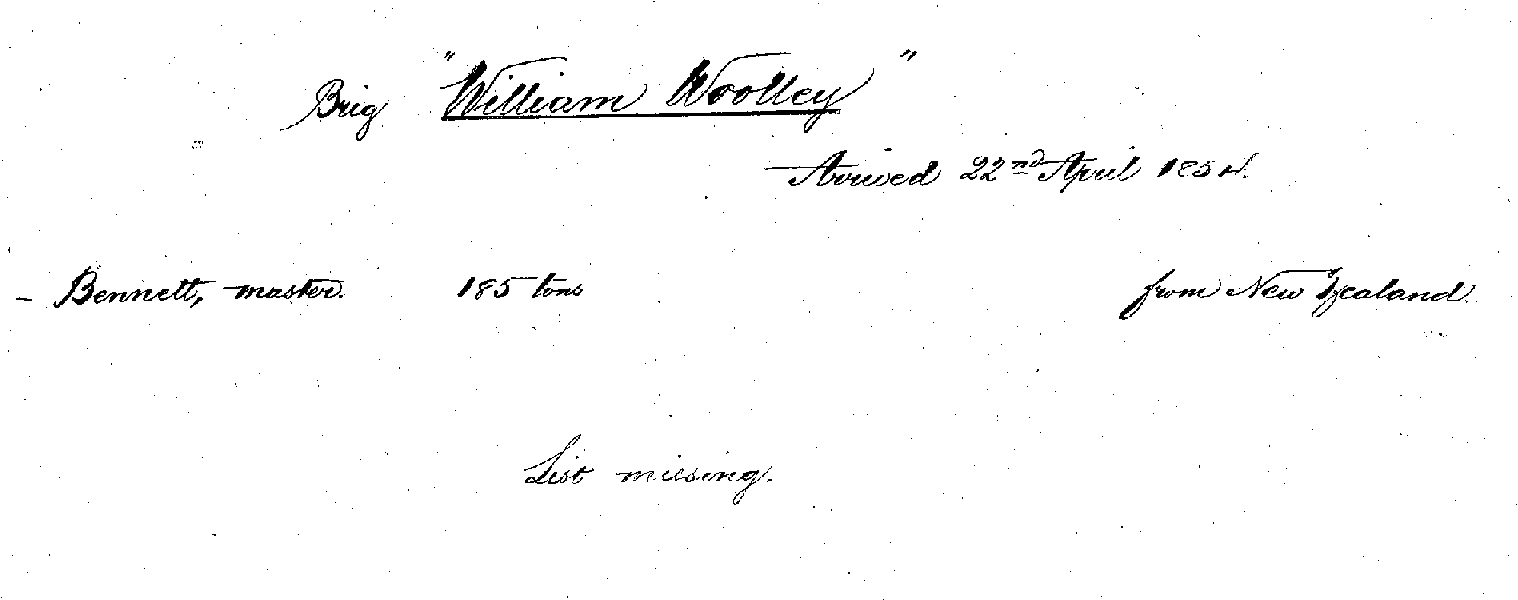 Brig "William Woolley"
Arrived 22nd April 1854.
- Bennett, master. 185 tons from New Zealand.
List missing.